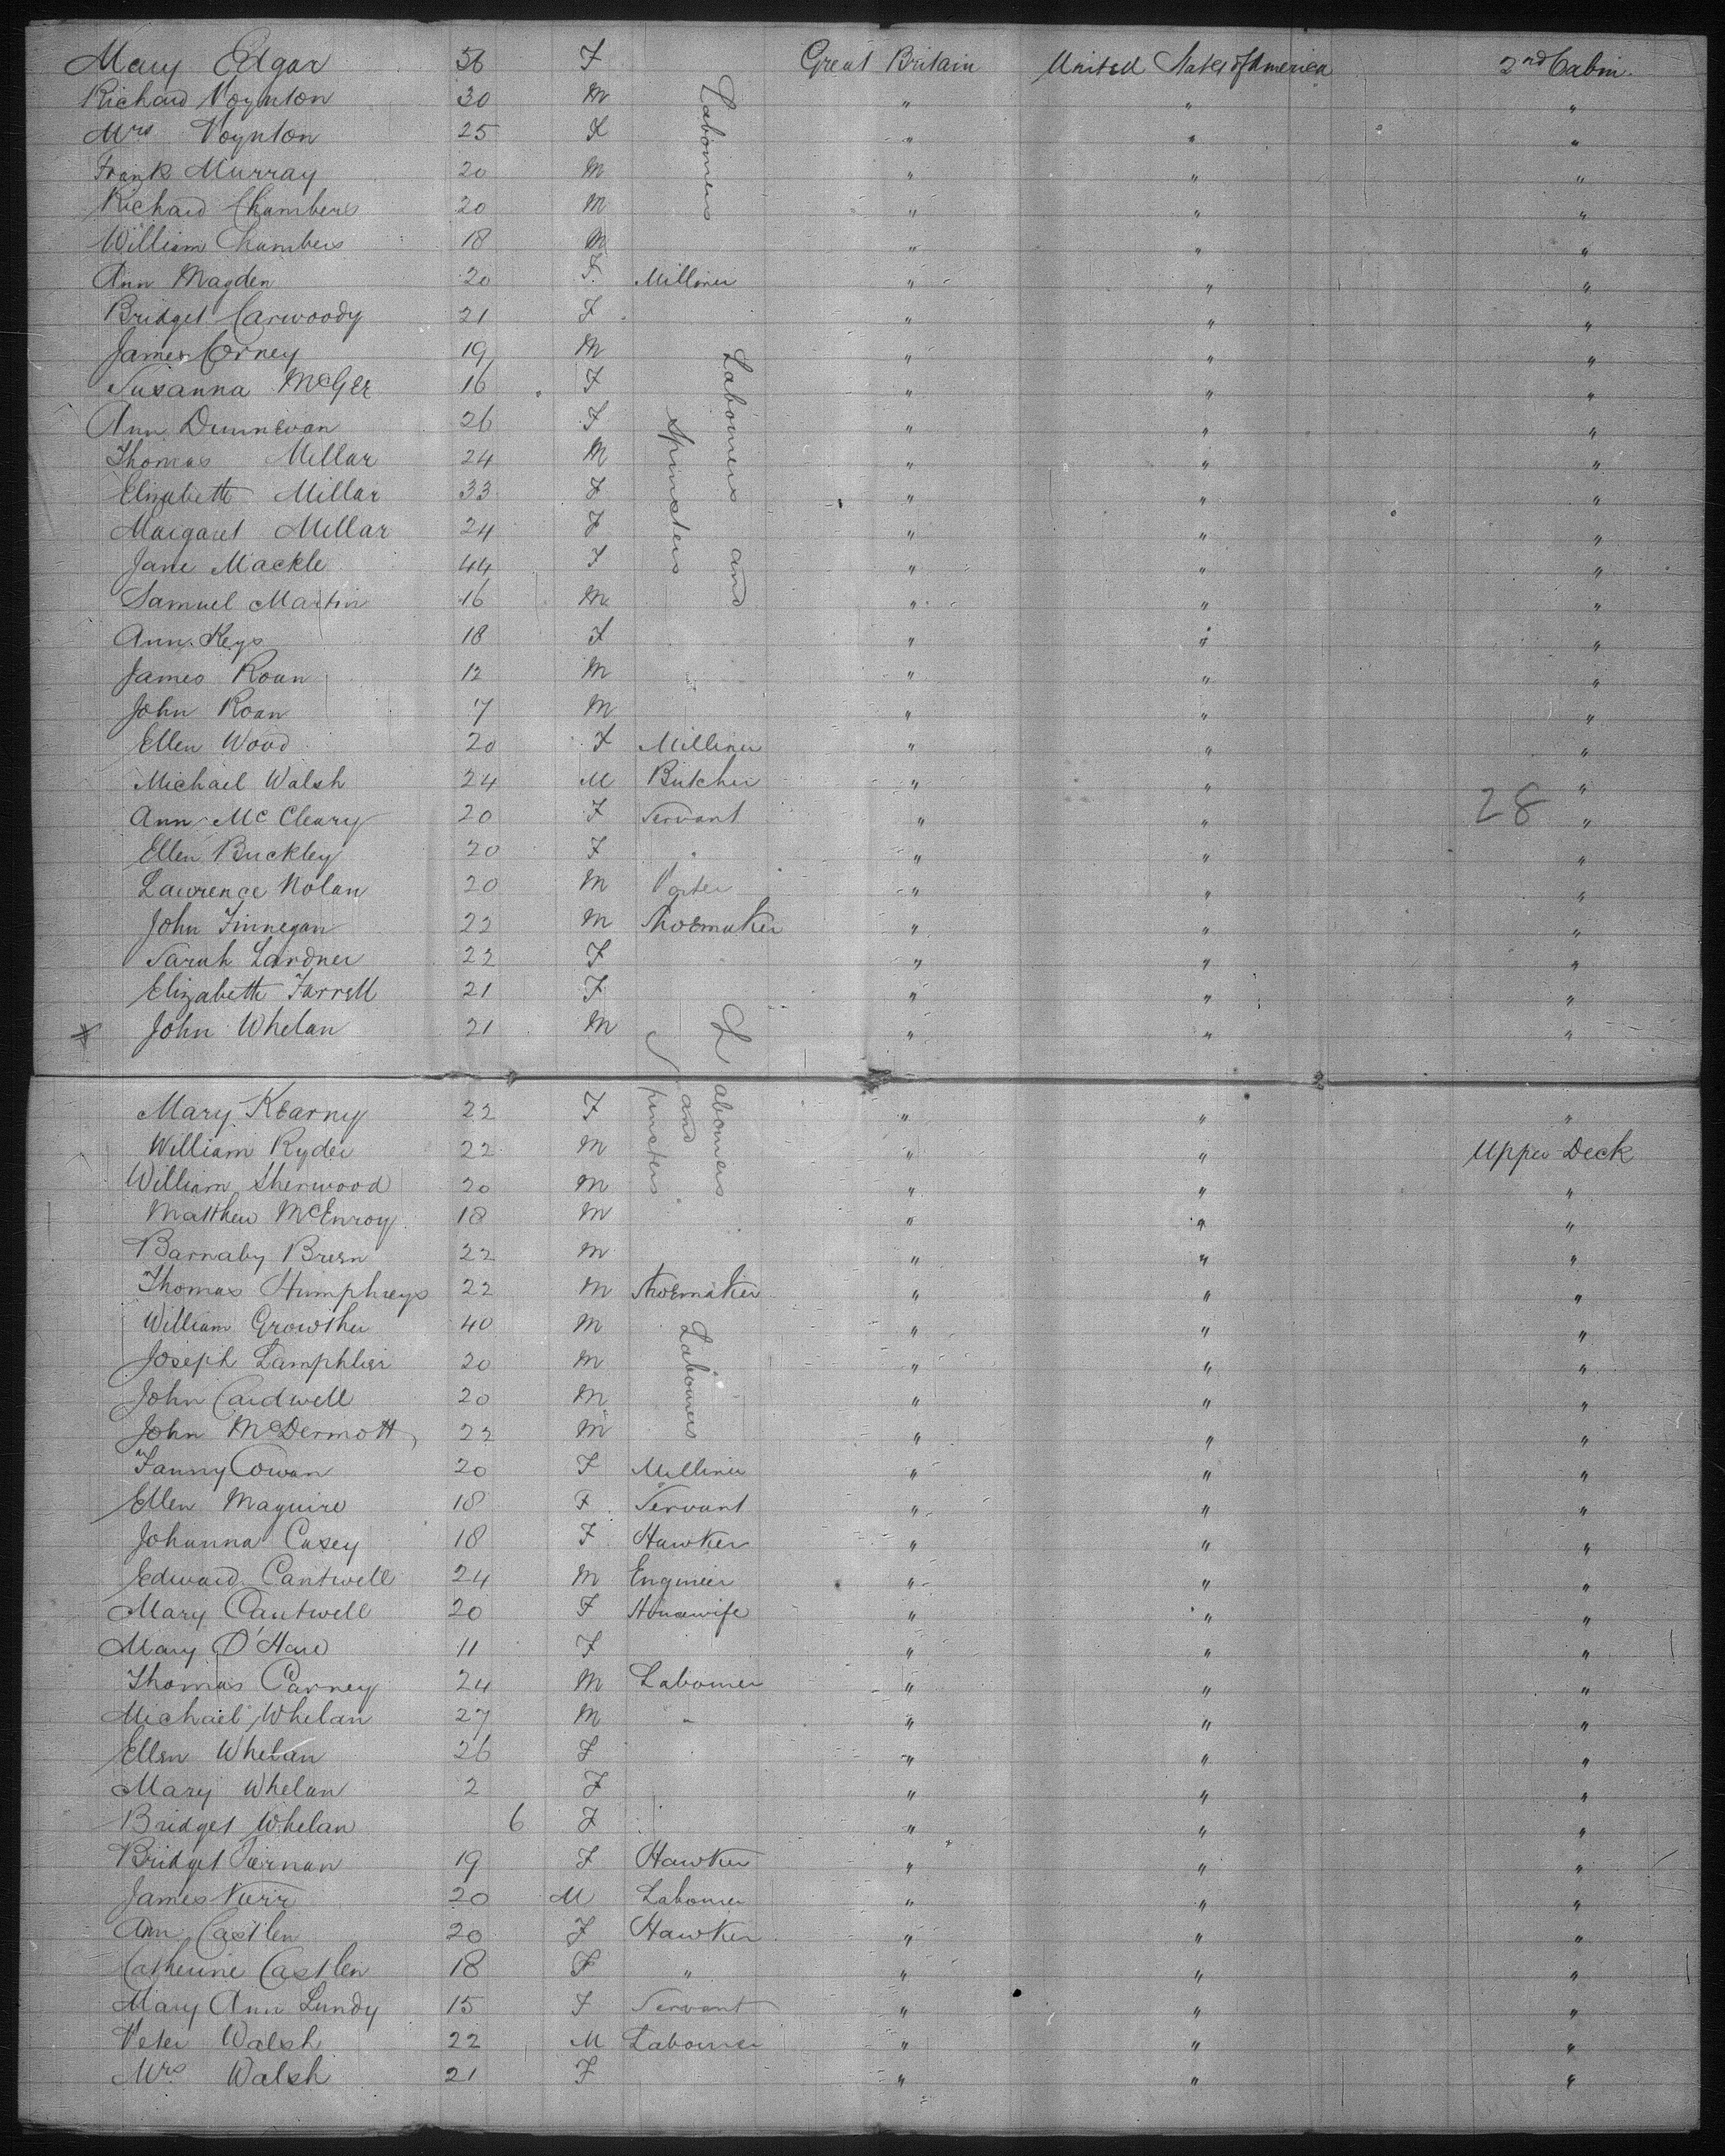 Mary Edgar 36 F Great Britain United States of America 2nd Cabin
Richard Poynton 30 M " " "
Mrs Poynton 25 F " " "
Labourers
Frank Murray 20 M " " "
Richard Chambers 20 M " " "
William Chambers 18 M " " "
Ann Magden 20 F. Milliner " " "
Bridget Carwoody 21 F " " "
James Corney 19 M " " "
Susanna McGer 16 F " " "
Labourers and Spinsters
Ann Dunnevan 26 F " " "
Thomas Millar 24 M " " "
Elizabeth Millar 33 F " " "
Margaret Millar 24 F " " "
Jane Mackle 44 F " " "
Samuel Martin 16 M " " "
Ann Keys 18 F " " "
James Roan 12 M " " "
John Roan 7 M " " "
Ellen Wood 20 F Milliner " " "
Michael Walsh 24 M Butcher " " "
Ann McCleary 20 F Servant " " 28 "
Ellen Buckley 20 F " " " "
Lawrence Nolan 20 M Porter " " "
John Finnegan 22 M Shoemaker " " "
Sarah Lardner 22 F " " "
Elizabeth Farrell 21 F " " "
John Whelan 21 M " " "
Labourers and Spinsters
Mary Kearny 22 F " " "
William Ryder 22 M " " Upper Deck
William Sherwood 20 M " " "
Matthew McEnroy 18 M " " "
Barnaby Breen 22 M " " "
Thomas Humphreys 22 M Shoemaker " " "
William Growther 40 M " " "
Labourers
Joseph Lamphlier 20 M " " "
John Cardwell 20 M " " "
John McDermott 22 M " " "
Fanny Cowan 20 F Milliner " " "
Ellen Maguire 18 F Servant " " "
Johanna Casey 18 F Hawker " " "
Edward Cantwell 24 M Engineer " " "
Mary Cantwell 20 F Housewife " " "
Mary O'Hare 11 F " " "
Thomas Carney 24 M Labourer " " "
Michael Whelan 27 M " " " "
Ellen Whelan 26 F " " "
Mary Whelan 2 F " " "
Bridget Whelan 6 F " " "
Bridget Tiernan 19 F Hawker " " "
James 20 M Labourer " " "
Ann Castlen 20 F Hawker " " "
Catherine Castlen 18 F " " " "
Mary Ann Lundy 15 F Servant " " "
Peter Walsh 22 M Labourer " " "
Mrs Walsh 21 F " " "